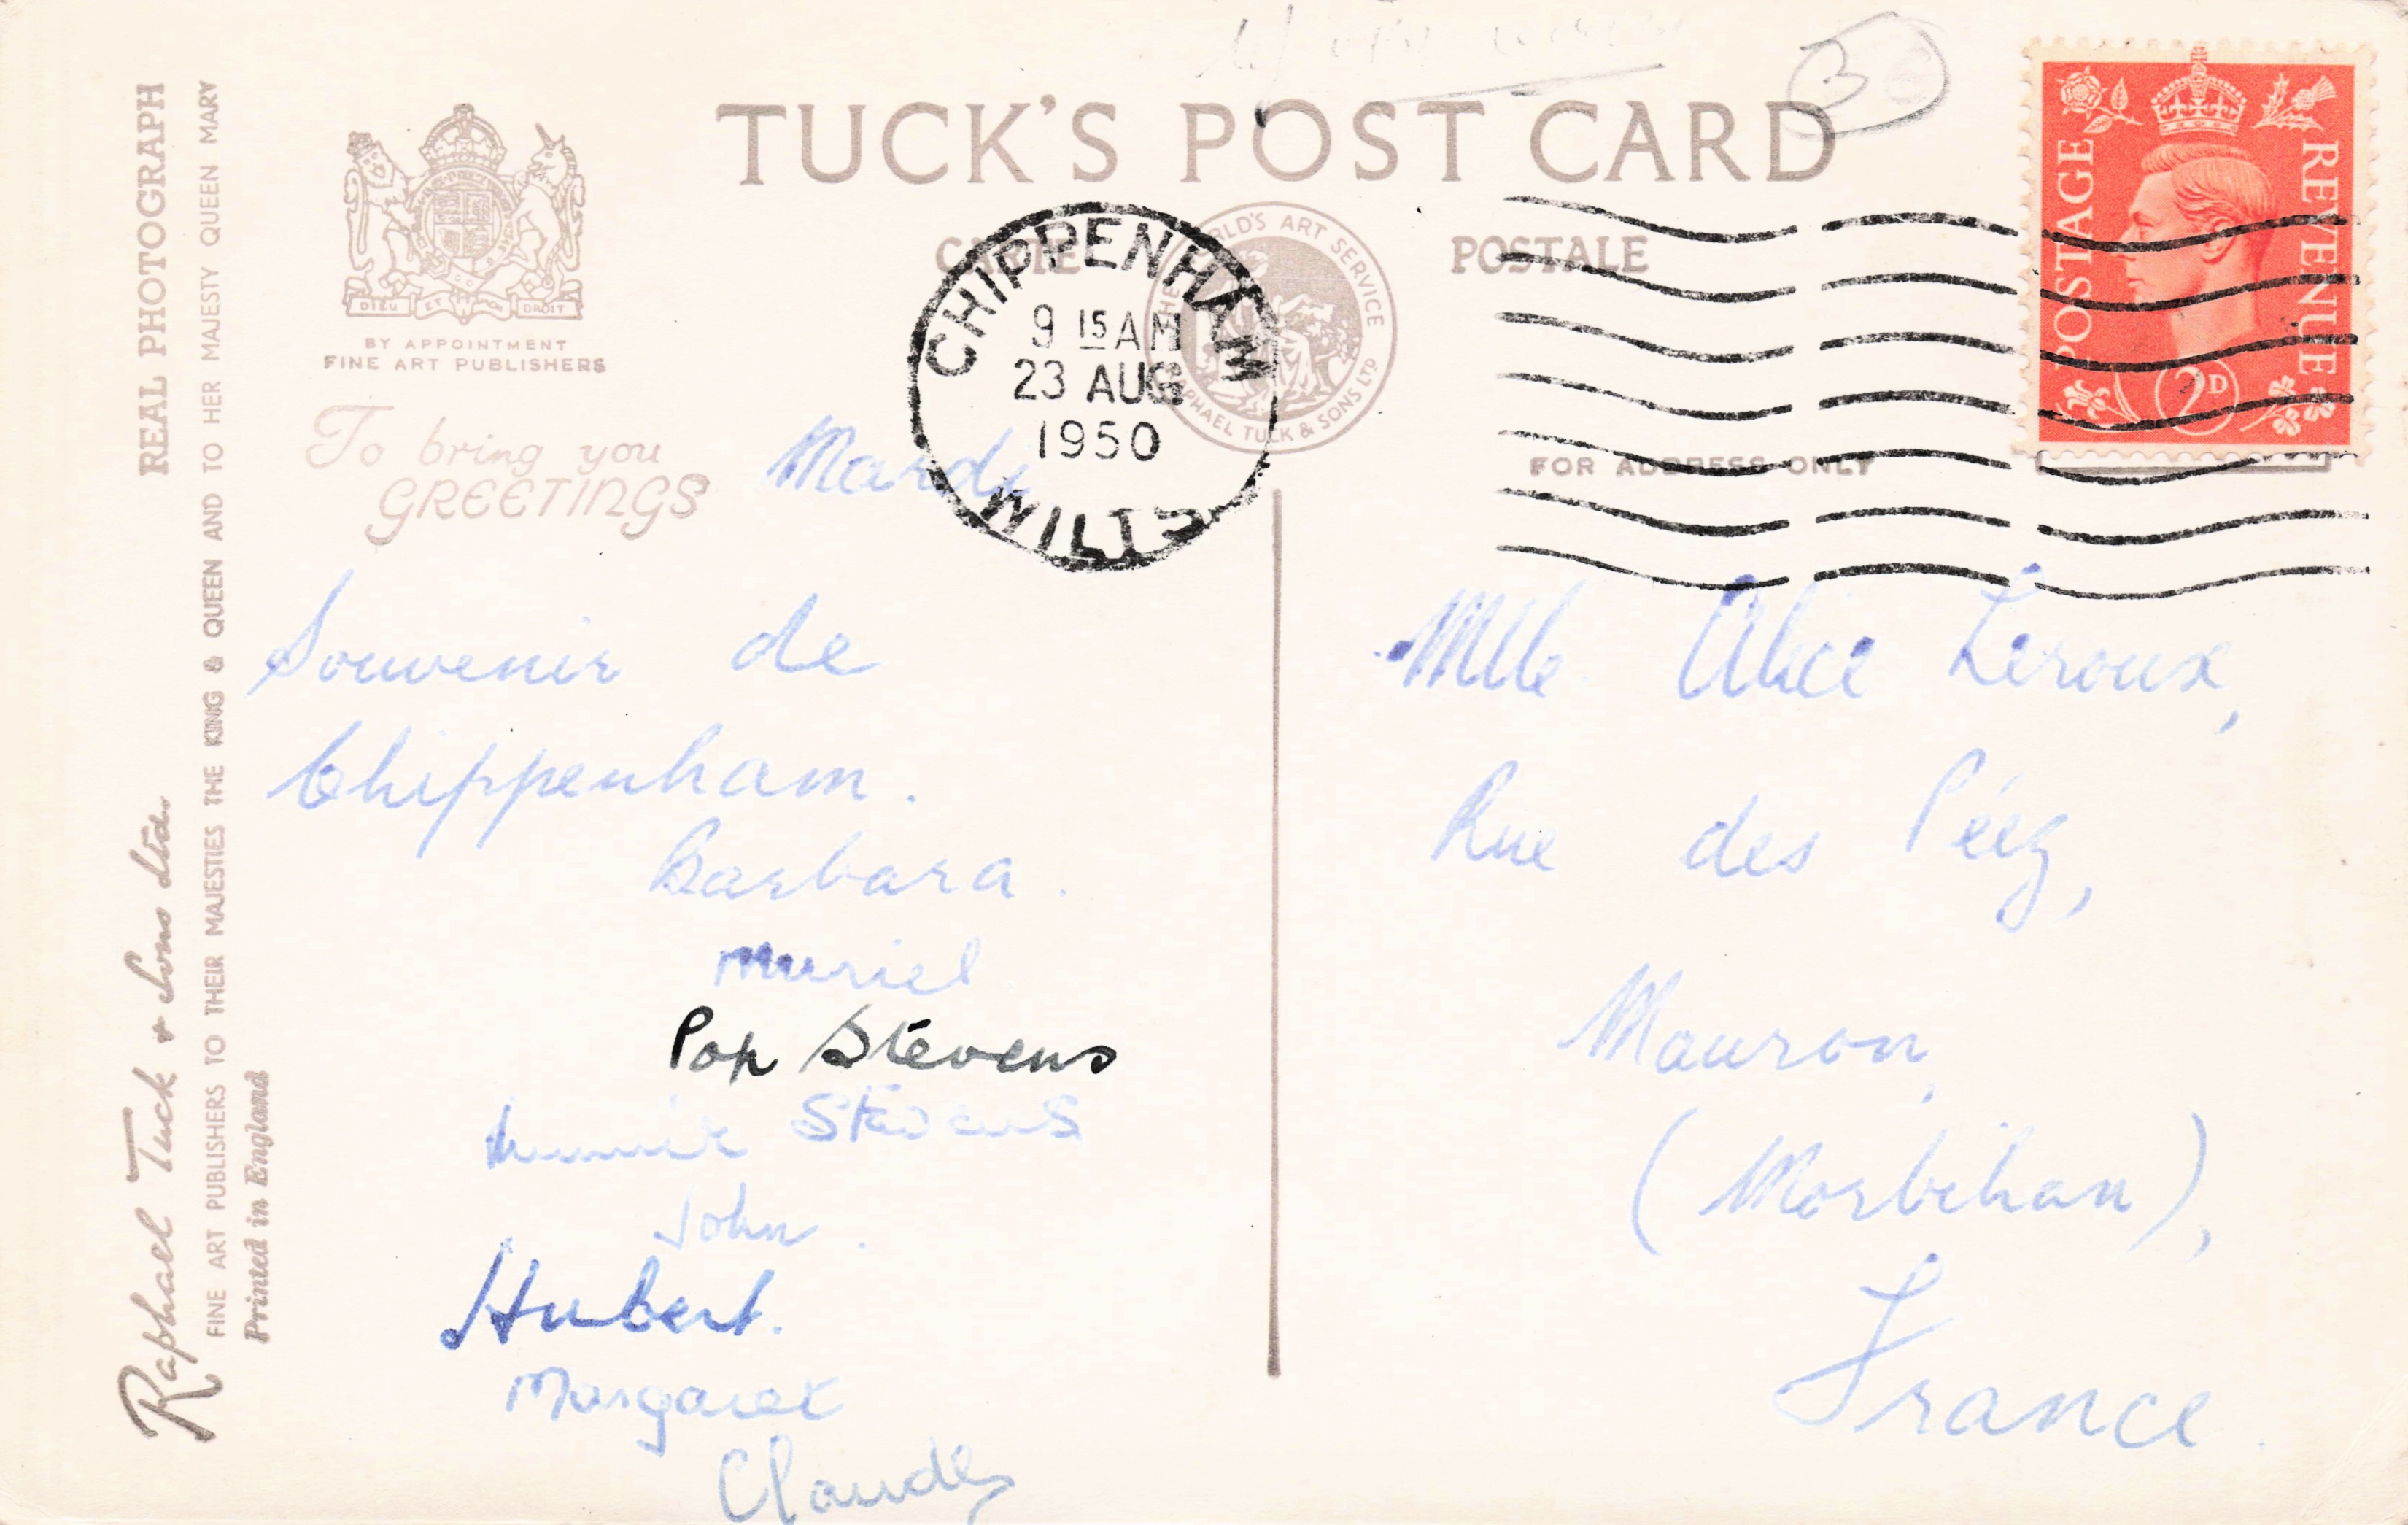 TUCK'S POST CARD
CARTE POSTALE
THE WORLD'S ART SERVICE
RAPHAEL TUCK & SONS LTD
DIEU ET MON DROIT
BY APPOINTMENT
FINE ART PUBLISHERS
To bring you
GREETINGS
CHIPPENHAM
9 15 AM
23 AUG
1950
WILTS
POSTAGE
REVENUE
2D
FOR ADDRESS ONLY
Mardi
Souvenir de
Chippenham.
Barbara.
Muriel
Pop Stevens
Stevens
John.
Hubert.
Margaret
Claude
Mlle Alice Leroux,
Rue des
Mauron,
(Morbihan),
France.
REAL PHOTOGRAPH
Raphael Tuck & Sons Ltd.
FINE ART PUBLISHERS TO THEIR MAJESTIES THE KING & QUEEN AND TO HER MAJESTY QUEEN MARY
Printed in England